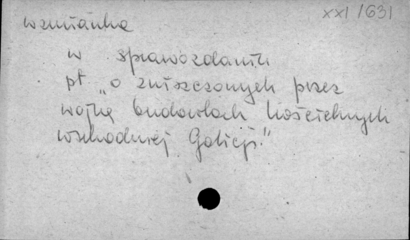 XXI/631
wzmianka
w sprawozdaniu
pt „o zniszczonych przez
wojnę budowlach kościelnych
wschodniej Galicji."